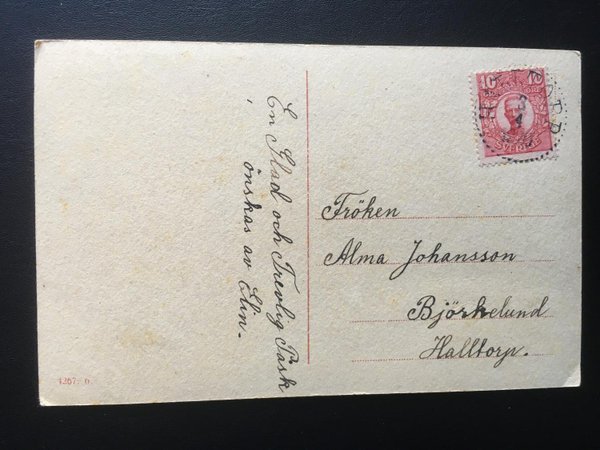 En Glad och Trevlig Påsk
önskas av Elin.
10
10
SVERIGE
Fröken
Alma Johansson
Björkelund
Halltorp.